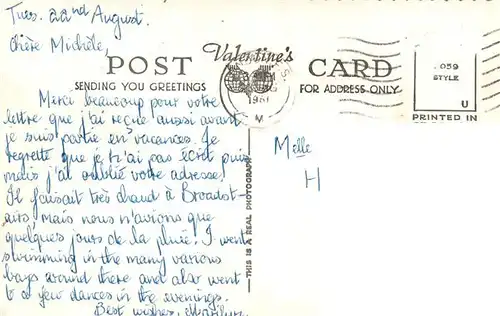 Tues. 22nd August.
Chère Michèle,
POST Valentine's CARD
SENDING YOU GREETINGS FOR ADDRESS ONLY
1961
M
.059
STYLE
U
PRINTED IN
Merci beaucoup pour votre
lettre que j'ai reçue aussi avant
je suis partie en vacances. Je
regrette que je n'ai pas écrit puis
mais j'ai oublié votre adresse.
Il faisait très chaud à Broadst-
airs, mais nous n'avions que
quelques jours de la pluie. I went
swimming in the many various
bays around there and also went
to a few dances in the evenings.
Best wishes, Marilyn
THIS IS A REAL PHOTOGRAPH
Melle
H